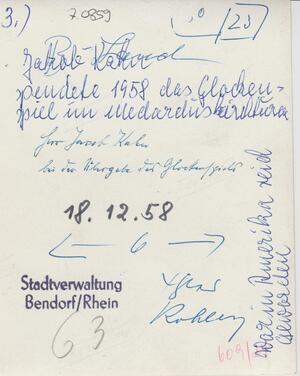 3.)
70859
(23)
Jakob Kahn
spendete 1958 das Glocken=
spiel im Medarduskirchturm
Herr Jacob Kahn
bei der Übergabe des Glockenspiels
18.12.58
6
Stadtverwaltung
Bendorf/Rhein
63
war in Amerika reich
geworden